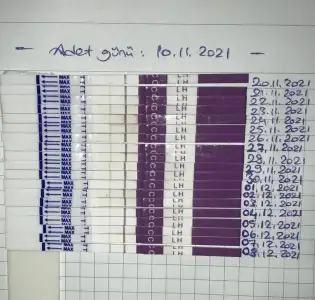 — Adet günü : 10.11.2021 —
MAX T C LH 20.11.2021
MAX T C LH 21.11.2021
MAX T C LH 22.11.2021
MAX T C LH 23.11.2021
MAX T C LH 24.11.2021
MAX T C LH 25.11.2021
MAX T C LH 26.11.2021
MAX T C LH 27.11.2021
MAX T C LH 28.11.2021
MAX T C LH 29.11.2021
MAX T C LH 30.11.2021
MAX T C LH 01.12.2021
MAX T C LH 02.12.2021
MAX T C LH 03.12.2021
MAX T C LH 04.12.2021
MAX T C LH 05.12.2021
MAX T C LH 06.12.2021
MAX T C LH 07.12.2021
MAX T C LH 08.12.2021